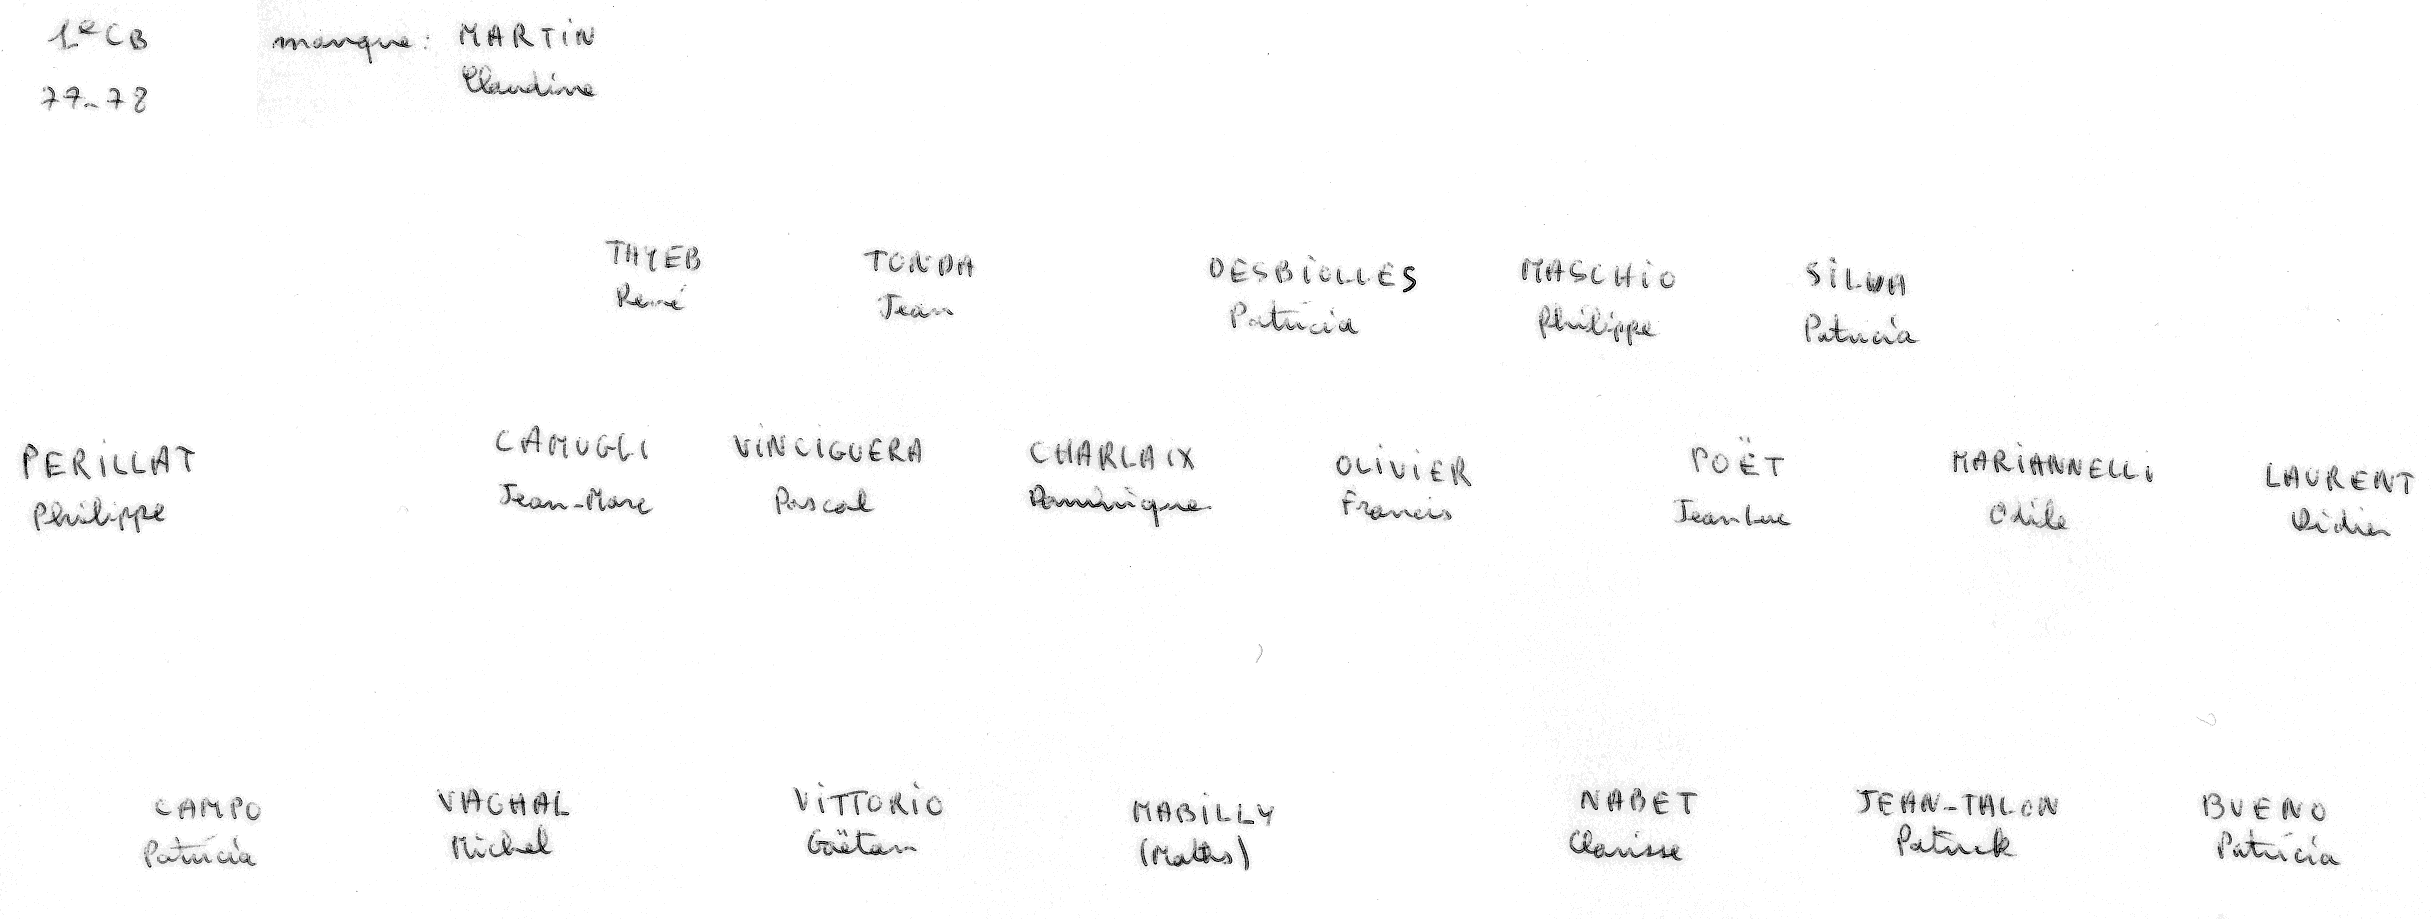 1eCB manque: MARTIN
77-78 Claudine
THYEB TONDA DESBIOLLES MASCHIO SILVA
René Jean Patricia Philippe Patricia
PERILLAT CAMUGLI VINCIGUERA CHARLAIX OLIVIER POËT MARIANNELLI LAURENT
Philippe Jean-Marc Pascal Dominique Francis Jean Luc Odile Didier
CAMPO VACHAL VITTORIO MABILLY NABET JEAN-TALON BUENO
Patricia Michel Gaëtan (Maths) Clarisse Patrick Patricia